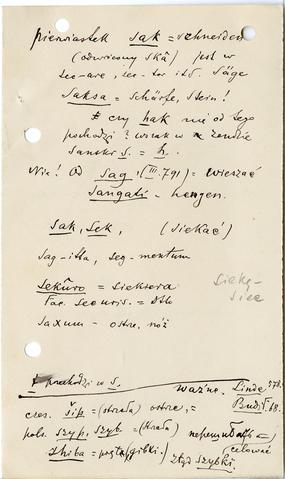 pierwiastek sak = schneiden
(odwrócony skâ) jest w
sec-are, sec-tor itd. Säge
Saksa = Schärfe, Stein!
czy hak nie od tego
pochodzi? wszak w zendzie
Sanskr s. = h.
Nie! Od sag, (III. 791) = wieszać
Sangati - hengen.
Sak, Sek, (Siekać)
Sag-itta, seg-mentum
Sekûro = Siekiera
Tac. securis = dto
Saxum - ostre, nóż
Sieką-
Siec
przechodzi w s.
ważne. Linde 578.
czes. šíp = (strzała) ostrze, = Budil. 68.
pols. szyp, szyb = (strzała)
celować
szyba = prosta (gibki) stąd szybki.